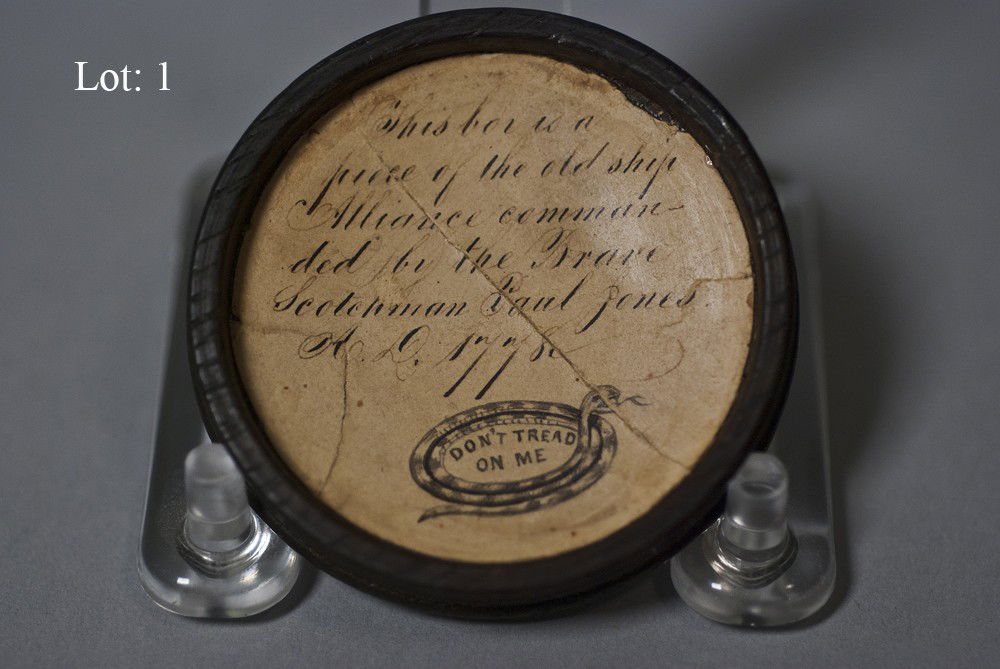 Lot: 1
This box is a
piece of the old ship
Alliance comman-
ded by the Brave
Scotchman Paul Jones.
A. D. 1778
DON'T TREAD
ON ME